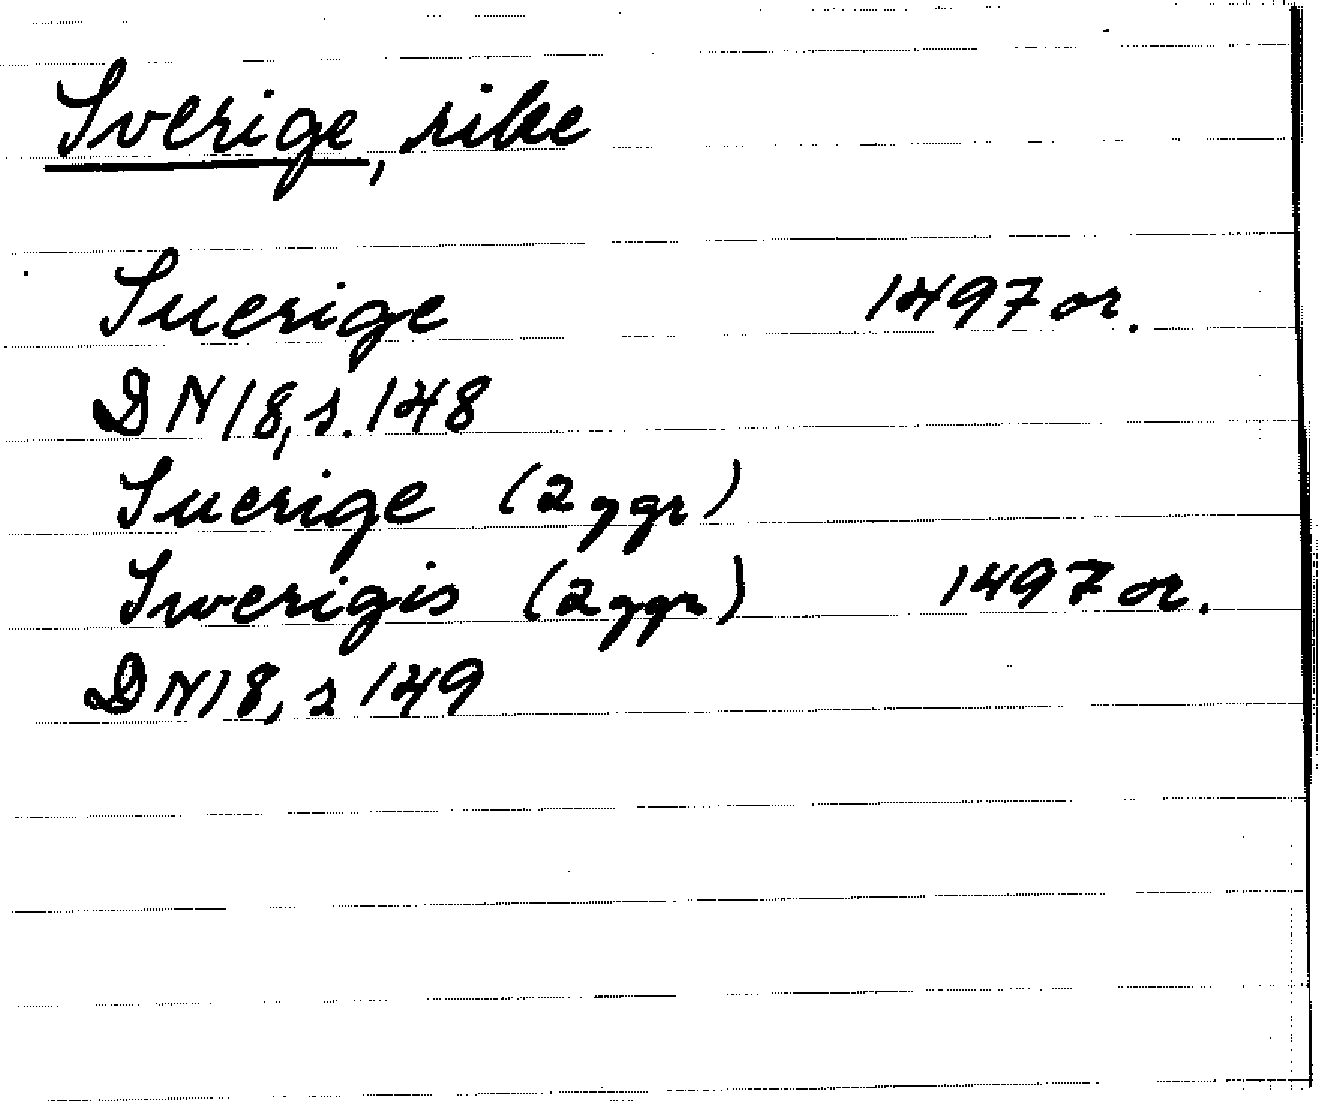 Sverige, rike
Suerige 1497 or.
DN 18, s. 148
Suerige (2 ggr)
Swerigis (2 ggr) 1497 or.
DN 18, s 149